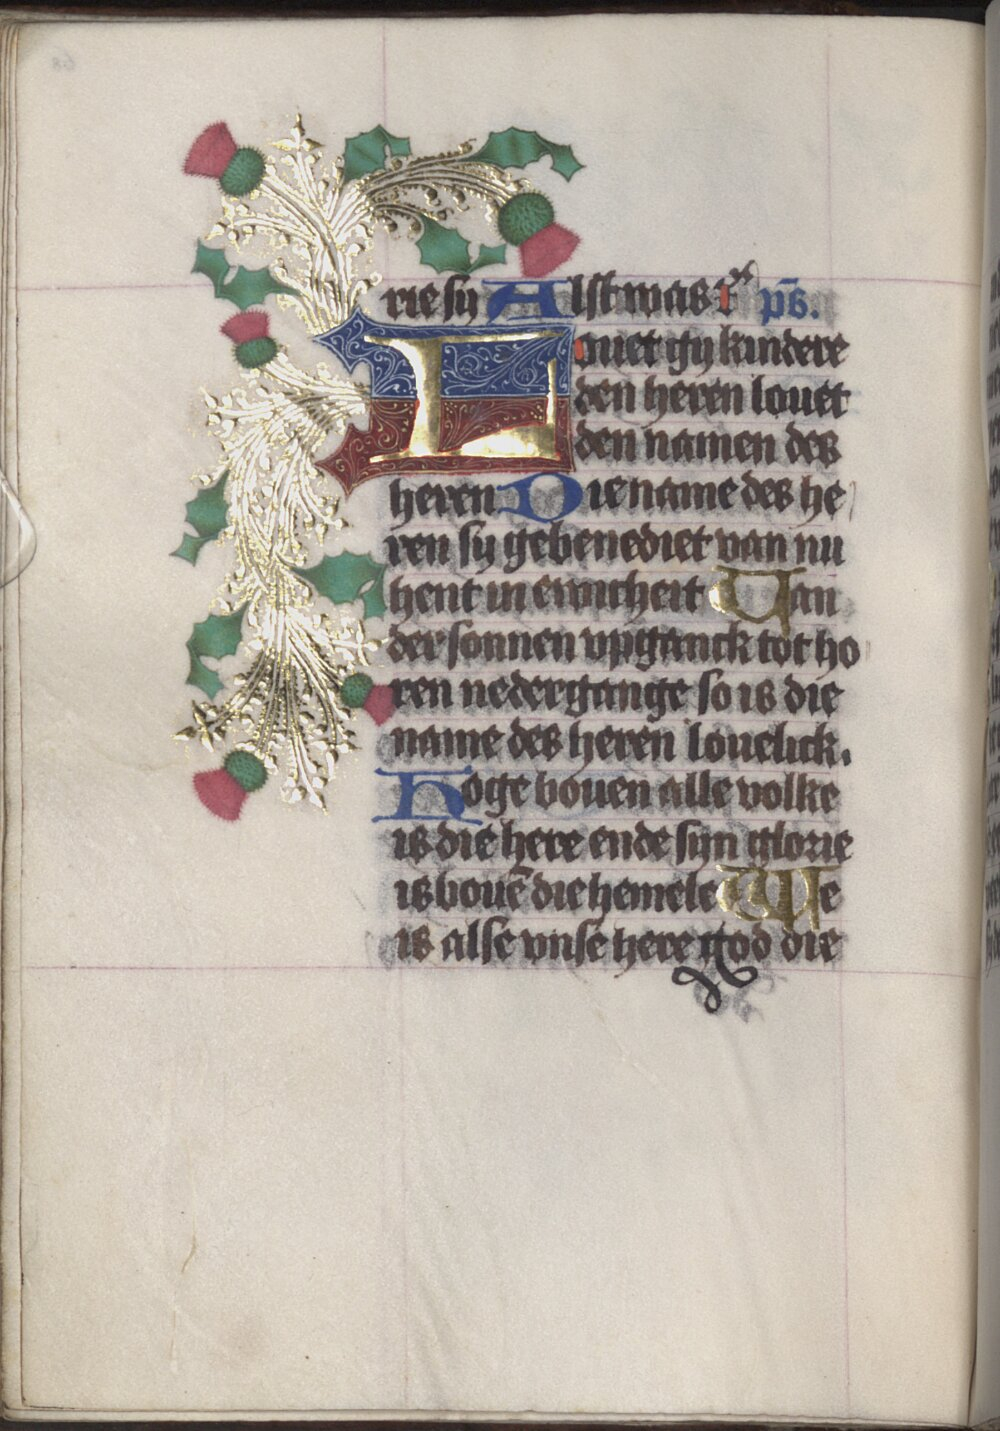 rie sy Alst was ps.
Louet gy kindere
den heren louet
den namen des
heren Die name des he
ren sy gebenediet van nu
hent in ewicheit Uan
der sonnen vpganck tot ho
ren nedergange so is die
name des heren louelick.
Hoge bouen alle volke
is die here ende syn glorie
is bouē die hemele We
is alse vnse here god die